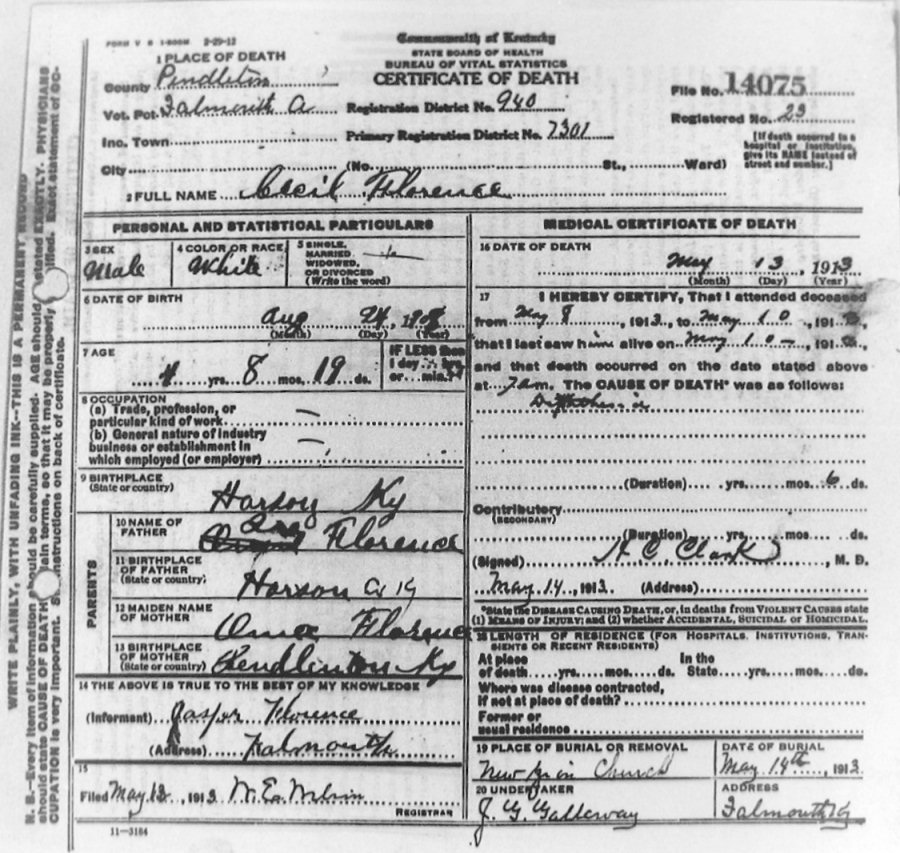 FORM V S 1-500M 2-29-12
Commonwealth of Kentucky
STATE BOARD OF HEALTH
BUREAU OF VITAL STATISTICS
CERTIFICATE OF DEATH
1 PLACE OF DEATH
County Pendleton
Vot. Pct. Falmouth A
Inc. Town
City
Registration District No. 940
Primary Registration District No. 7301
File No. 14075
Registered No. 23
[If death occurred in a
hospital or institution,
give its NAME instead of
street and number.]
(No. St., Ward)
2 FULL NAME Cecil Florence
PERSONAL AND STATISTICAL PARTICULARS
3 SEX
Male
4 COLOR OR RACE
White
5 SINGLE,
MARRIED
WIDOWED,
OR DIVORCED
(Write the word)
6 DATE OF BIRTH
Aug 24, 1908
(Month) (Day) (Year)
7 AGE
4 yrs. 8 mos. 19 ds.
IF LESS than
1 day hrs.
or min.?
8 OCCUPATION
(a) Trade, profession, or
particular kind of work —
(b) General nature of industry
business or establishment in
which employed (or employer) —
9 BIRTHPLACE
(State or country)
Harson Ky
PARENTS
10 NAME OF
FATHER
Florence
11 BIRTHPLACE
OF FATHER
(State or country)
Harson Co Ky
12 MAIDEN NAME
OF MOTHER
Oma Florence
13 BIRTHPLACE
OF MOTHER
(State or country)
Pendlinton Ky
14 THE ABOVE IS TRUE TO THE BEST OF MY KNOWLEDGE
(Informant) Jasper Florence
(Address) Falmouth
15
Filed May 13, 1913 W. E.
REGISTRAR
11—3184
MEDICAL CERTIFICATE OF DEATH
16 DATE OF DEATH
May 13, 1913
(Month) (Day) (Year)
17 I HEREBY CERTIFY, That I attended deceased
from May 8, 1913, to May 10, 191
that I last saw him alive on May 10, 191
and that death occurred on the date stated above
at 7 am. The CAUSE OF DEATH* was as follows:
Diphtheria
(Duration) yrs. mos. 6 ds.
Contributory
(SECONDARY)
(Duration) yrs. mos. ds.
(Signed) H C Clark, M. D.
May 14, 1913 (Address)
*State the DISEASE CAUSING DEATH, or, in deaths from VIOLENT CAUSES state
(1) MEANS OF INJURY; and (2) whether ACCIDENTAL, SUICIDAL or HOMICIDAL.
18 LENGTH OF RESIDENCE (FOR HOSPITALS, INSTITUTIONS, TRAN-
SIENTS OR RECENT RESIDENTS)
At place In the
of death yrs. mos. ds. State yrs. mos. ds.
Where was disease contracted,
if not at place of death?
Former or
usual residence
19 PLACE OF BURIAL OR REMOVAL
New Church
DATE OF BURIAL
May 14th, 1913
20 UNDERTAKER
J. G. Galloway
ADDRESS
Falmouth Ky
WRITE PLAINLY, WITH UNFADING INK—THIS IS A PERMANENT RECORD
N. B.—Every item of information should be carefully supplied. AGE should stated EXACTLY. PHYSICIANS
should state CAUSE OF DEATH plain terms, so that it may be properly ified. Exact statement of OC-
CUPATION is very important. See instructions on back of certificate.